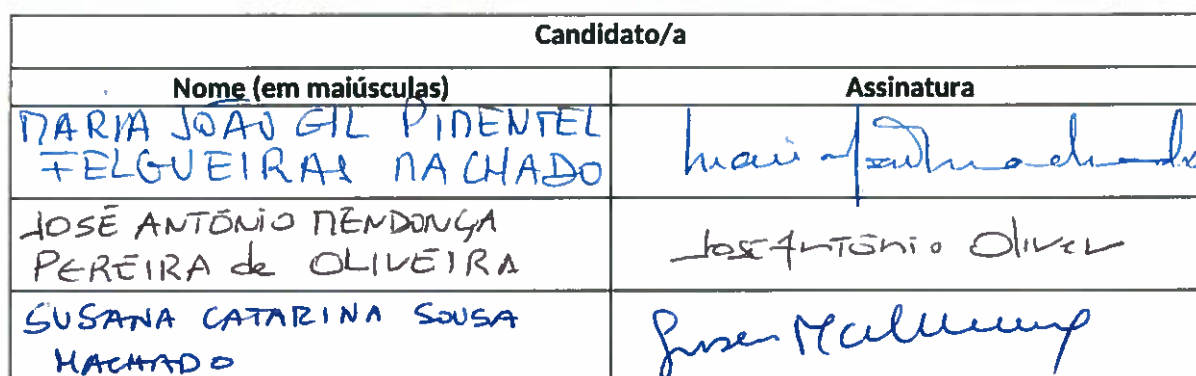 Candidato/a
Nome (em maiúsculas)
Assinatura
MARIA JOÃO GIL PIMENTEL
FELGUEIRAS MACHADO
JOSÉ ANTÓNIO MENDONÇA
PEREIRA de OLIVEIRA
José António Oliver
SUSANA CATARINA SOUSA
MACHADO